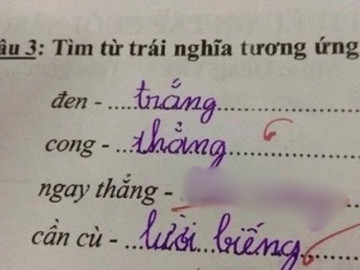 âu 3: Tìm từ trái nghĩa tương ứng
đen - ....trắng....................
cong - ...thẳng....................
ngay thẳng -
cần cù - ...lười biếng....